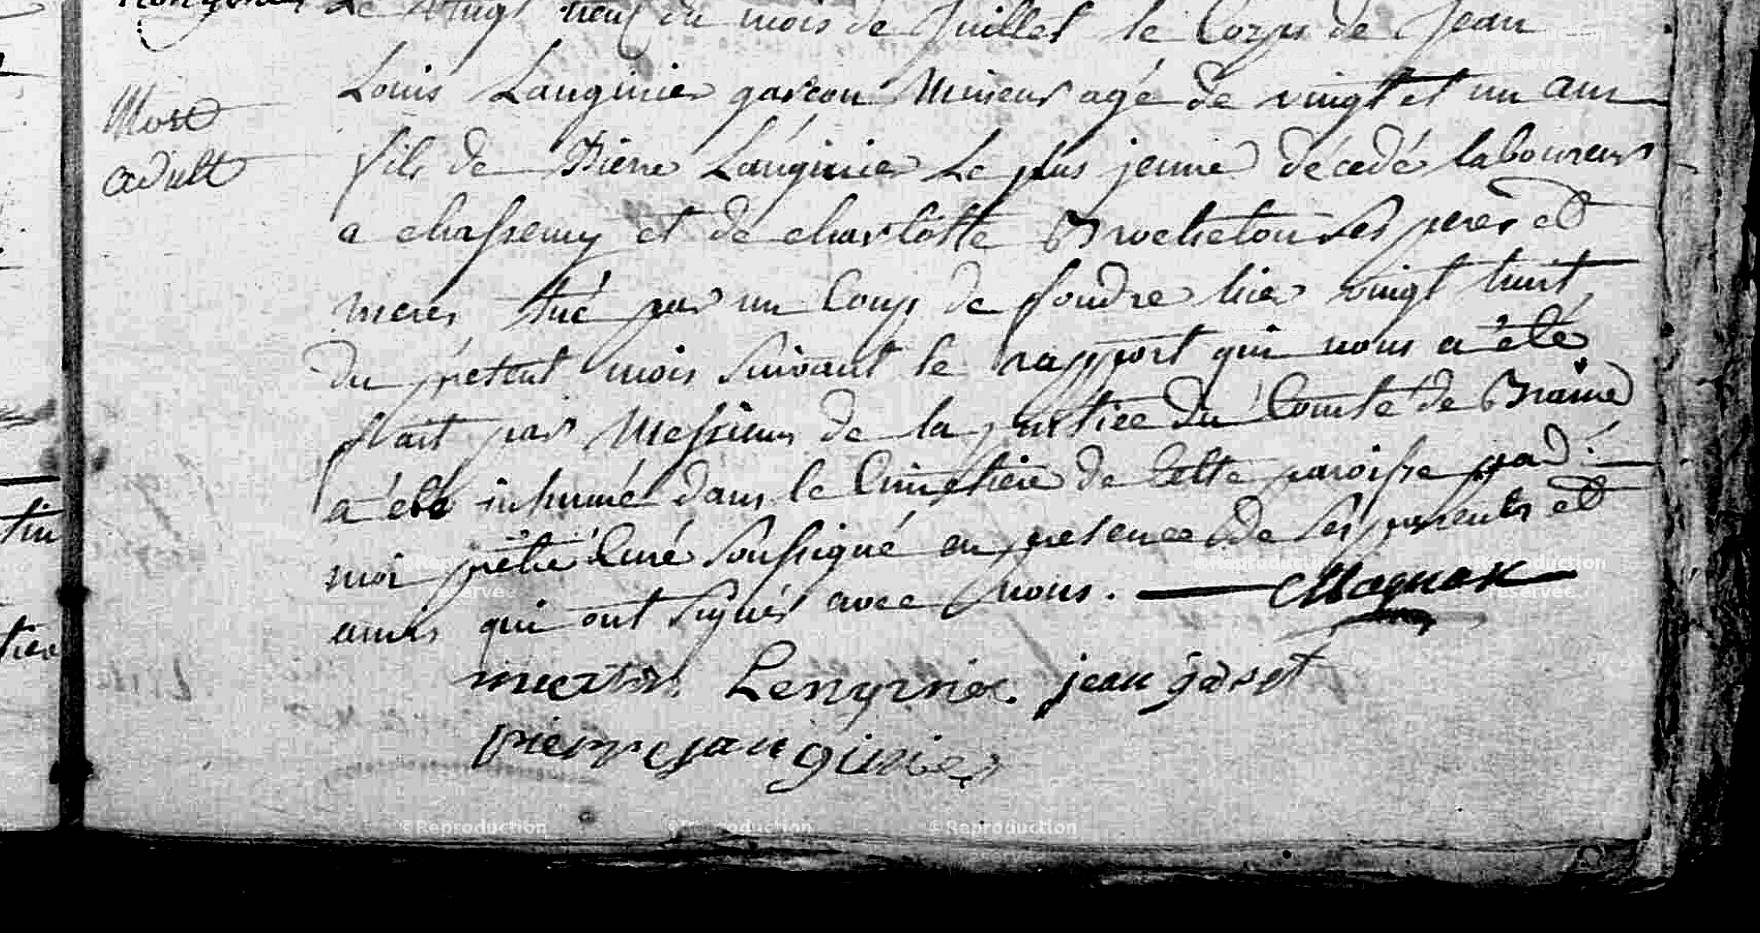 Le vingt neuf du mois de Juillet le Corps de Jean
Louis Langinier garcon Mineur agé de vingt et un ans
fils de Pierre Langinier Le plus jeune décedé laboureur
a chassemy et de charlotte Brocheton ses peres et
meres tué par un Coup de foudre hier vingt huit
du présent mois suivant le rapport qui nous a été
fait par Messieurs de la justice du Comté de Braine
a été inhumé dans le Cimetiere de Cette paroisse par
moi prêtre Curé soussigné en presence de ses parents et
amis qui ont signés avec nous.
Mort
adult
Lenginier jean
pierre langinier
©Reproduction
©Reproduction
©Reproduction